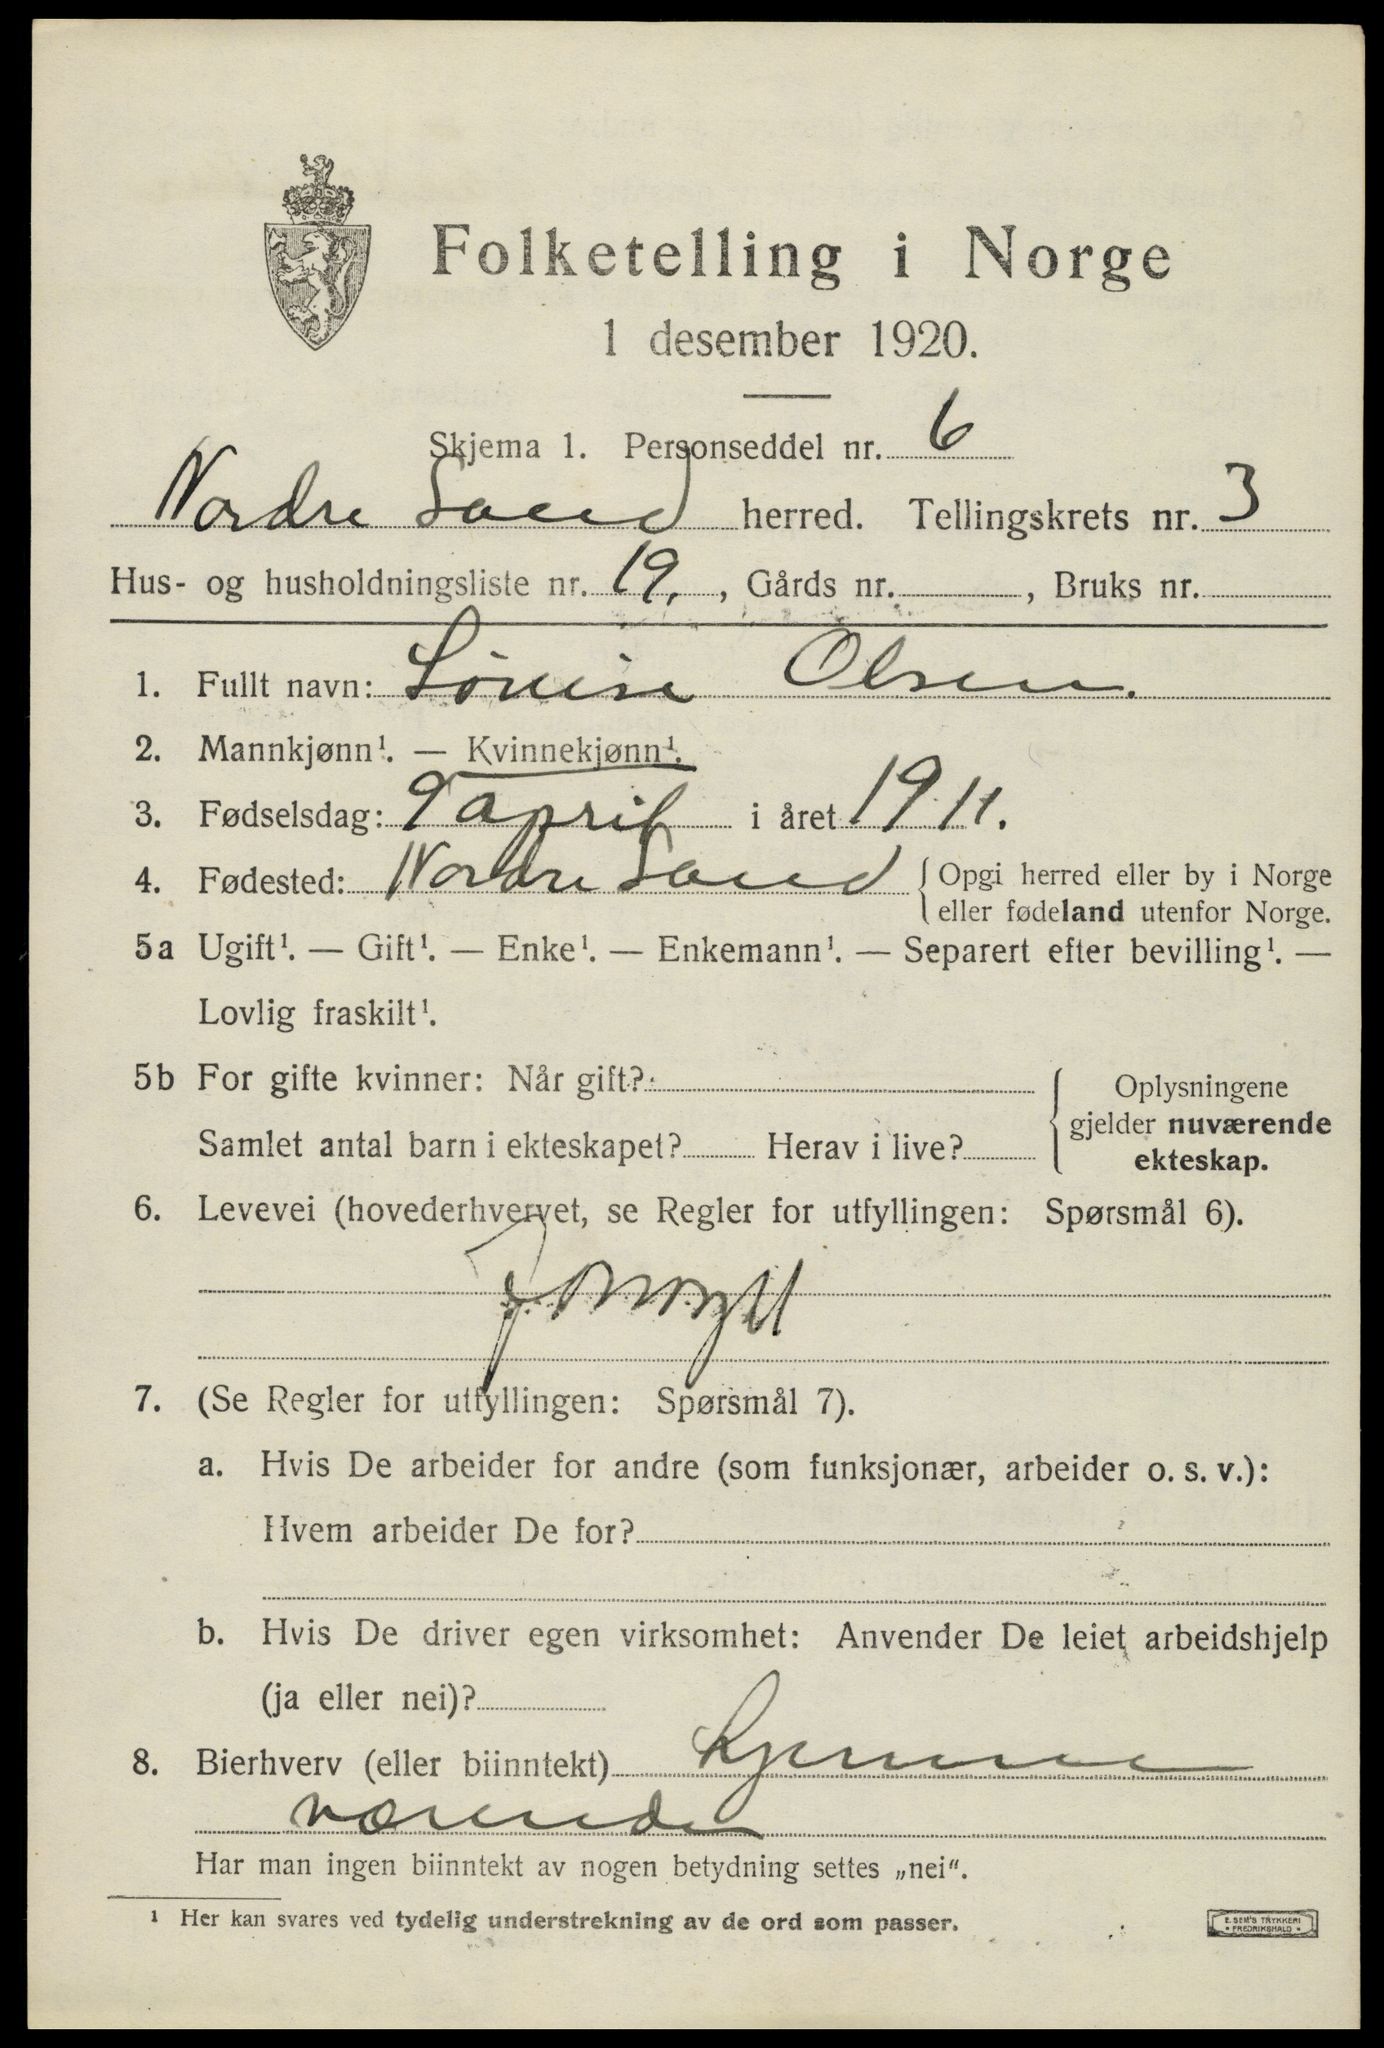 Folketelling i Norge
1 desember 1920.
Skjema 1. Personseddel nr. 6
Nordre Land herred. Tellingskrets nr. 3
Hus- og husholdningsliste nr. 19., Gårds nr. , Bruks nr.
1. Fullt navn: Lovise Olsen.
2. Mannkjønn¹. — Kvinnekjønn¹.
3. Fødselsdag: 9 april i året 1911.
4. Fødested: Nordre Land { Opgi herred eller by i Norge
eller fødeland utenfor Norge.
5a Ugift¹. — Gift¹. — Enke¹. — Enkemann¹. — Separert efter bevilling¹. —
Lovlig fraskilt¹.
5b For gifte kvinner: Når gift?
Samlet antal barn i ekteskapet? Herav i live?
Oplysningene
gjelder nuværende
ekteskap.
6. Levevei (hovederhvervet, se Regler for utfyllingen: Spørsmål 6).
7. (Se Regler for utfyllingen: Spørsmål 7).
a. Hvis De arbeider for andre (som funksjonær, arbeider o. s. v.):
Hvem arbeider De for?
b. Hvis De driver egen virksomhet: Anvender De leiet arbeidshjelp
(ja eller nei)?
8. Bierhverv (eller biinntekt) Hjemme
værende
Har man ingen biinntekt av nogen betydning settes „nei“.
¹ Her kan svares ved tydelig understrekning av de ord som passer.
E. SEM'S TRYKKERI
FREDRIKSHALD